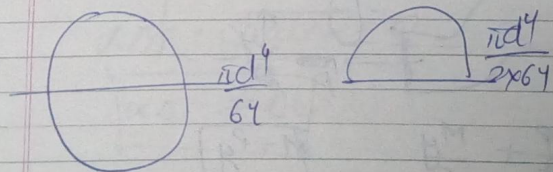 πd⁴
64
πd⁴
2×64